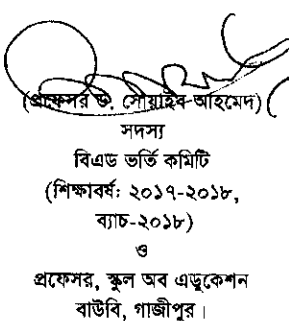 (প্রফেসর ড. সোয়াইব আহমেদ)
সদস্য
বিএড ভর্তি কমিটি
(শিক্ষাবর্ষঃ ২০১৭-২০১৮,
ব্যাচ-২০১৮)
ও
প্রফেসর, স্কুল অব এডুকেশন
বাউবি, গাজীপুর।